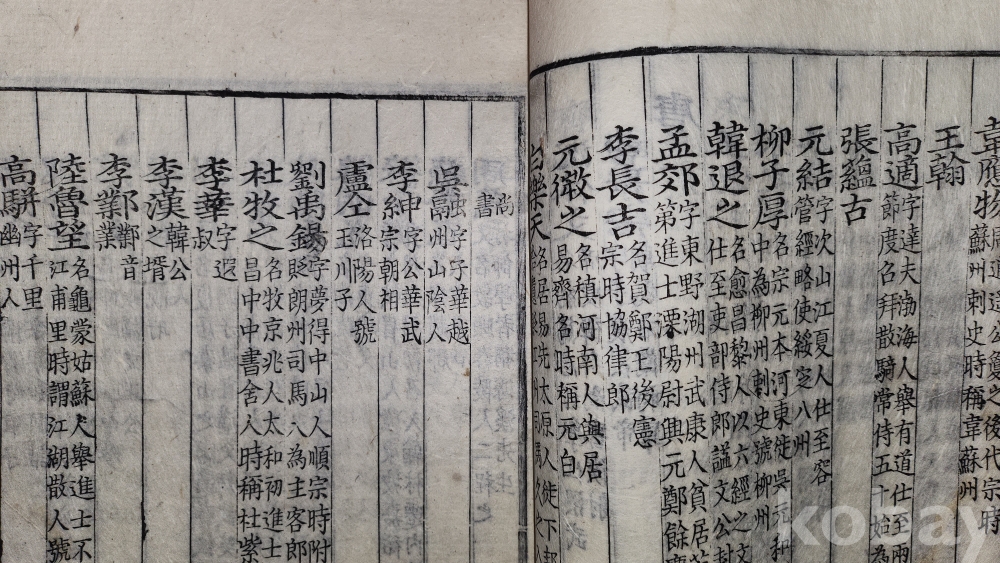 韋應物 逍遙公夐之後代宗時
蘇州刺史時稱韋蘇州
王翰
高適 字達夫渤海人舉有道仕至兩
節度召拜散騎常侍五十始為
張蘊古
元結 字次山江夏人仕至容
管經略使綏定八州
柳子厚 名宗元本河東徙吳元和
中為柳州刺史號柳州
韓退之 名愈昌黎人以六經之文
仕至吏部侍郎謚文公封
孟郊 字東野湖州武康人貧居
第進士溧陽尉興元鄭餘慶
李長吉 名賀鄭王後憲
宗時協律郎
元微之 名稹河南人與居
易齊名時稱元白
白樂天 名居易先太原人徒下邽
尚書
吳融 字子華越
州山陰人
李紳 字公華武
宗朝相
盧仝 洛陽人號
玉川子
劉禹錫 字夢得中山人順宗時附
貶朗州司馬入為主客郎
杜牧之 名牧京兆人太和初進士
昌中中書舍人時稱杜紫
李華 字遐
叔
李漢 韓公
之壻
李鄴 鄴音
業
陸魯望 名龜蒙姑蘇人舉進士不
江甫里時謂江湖散人號
高駢 字千里
幽州人
kobay